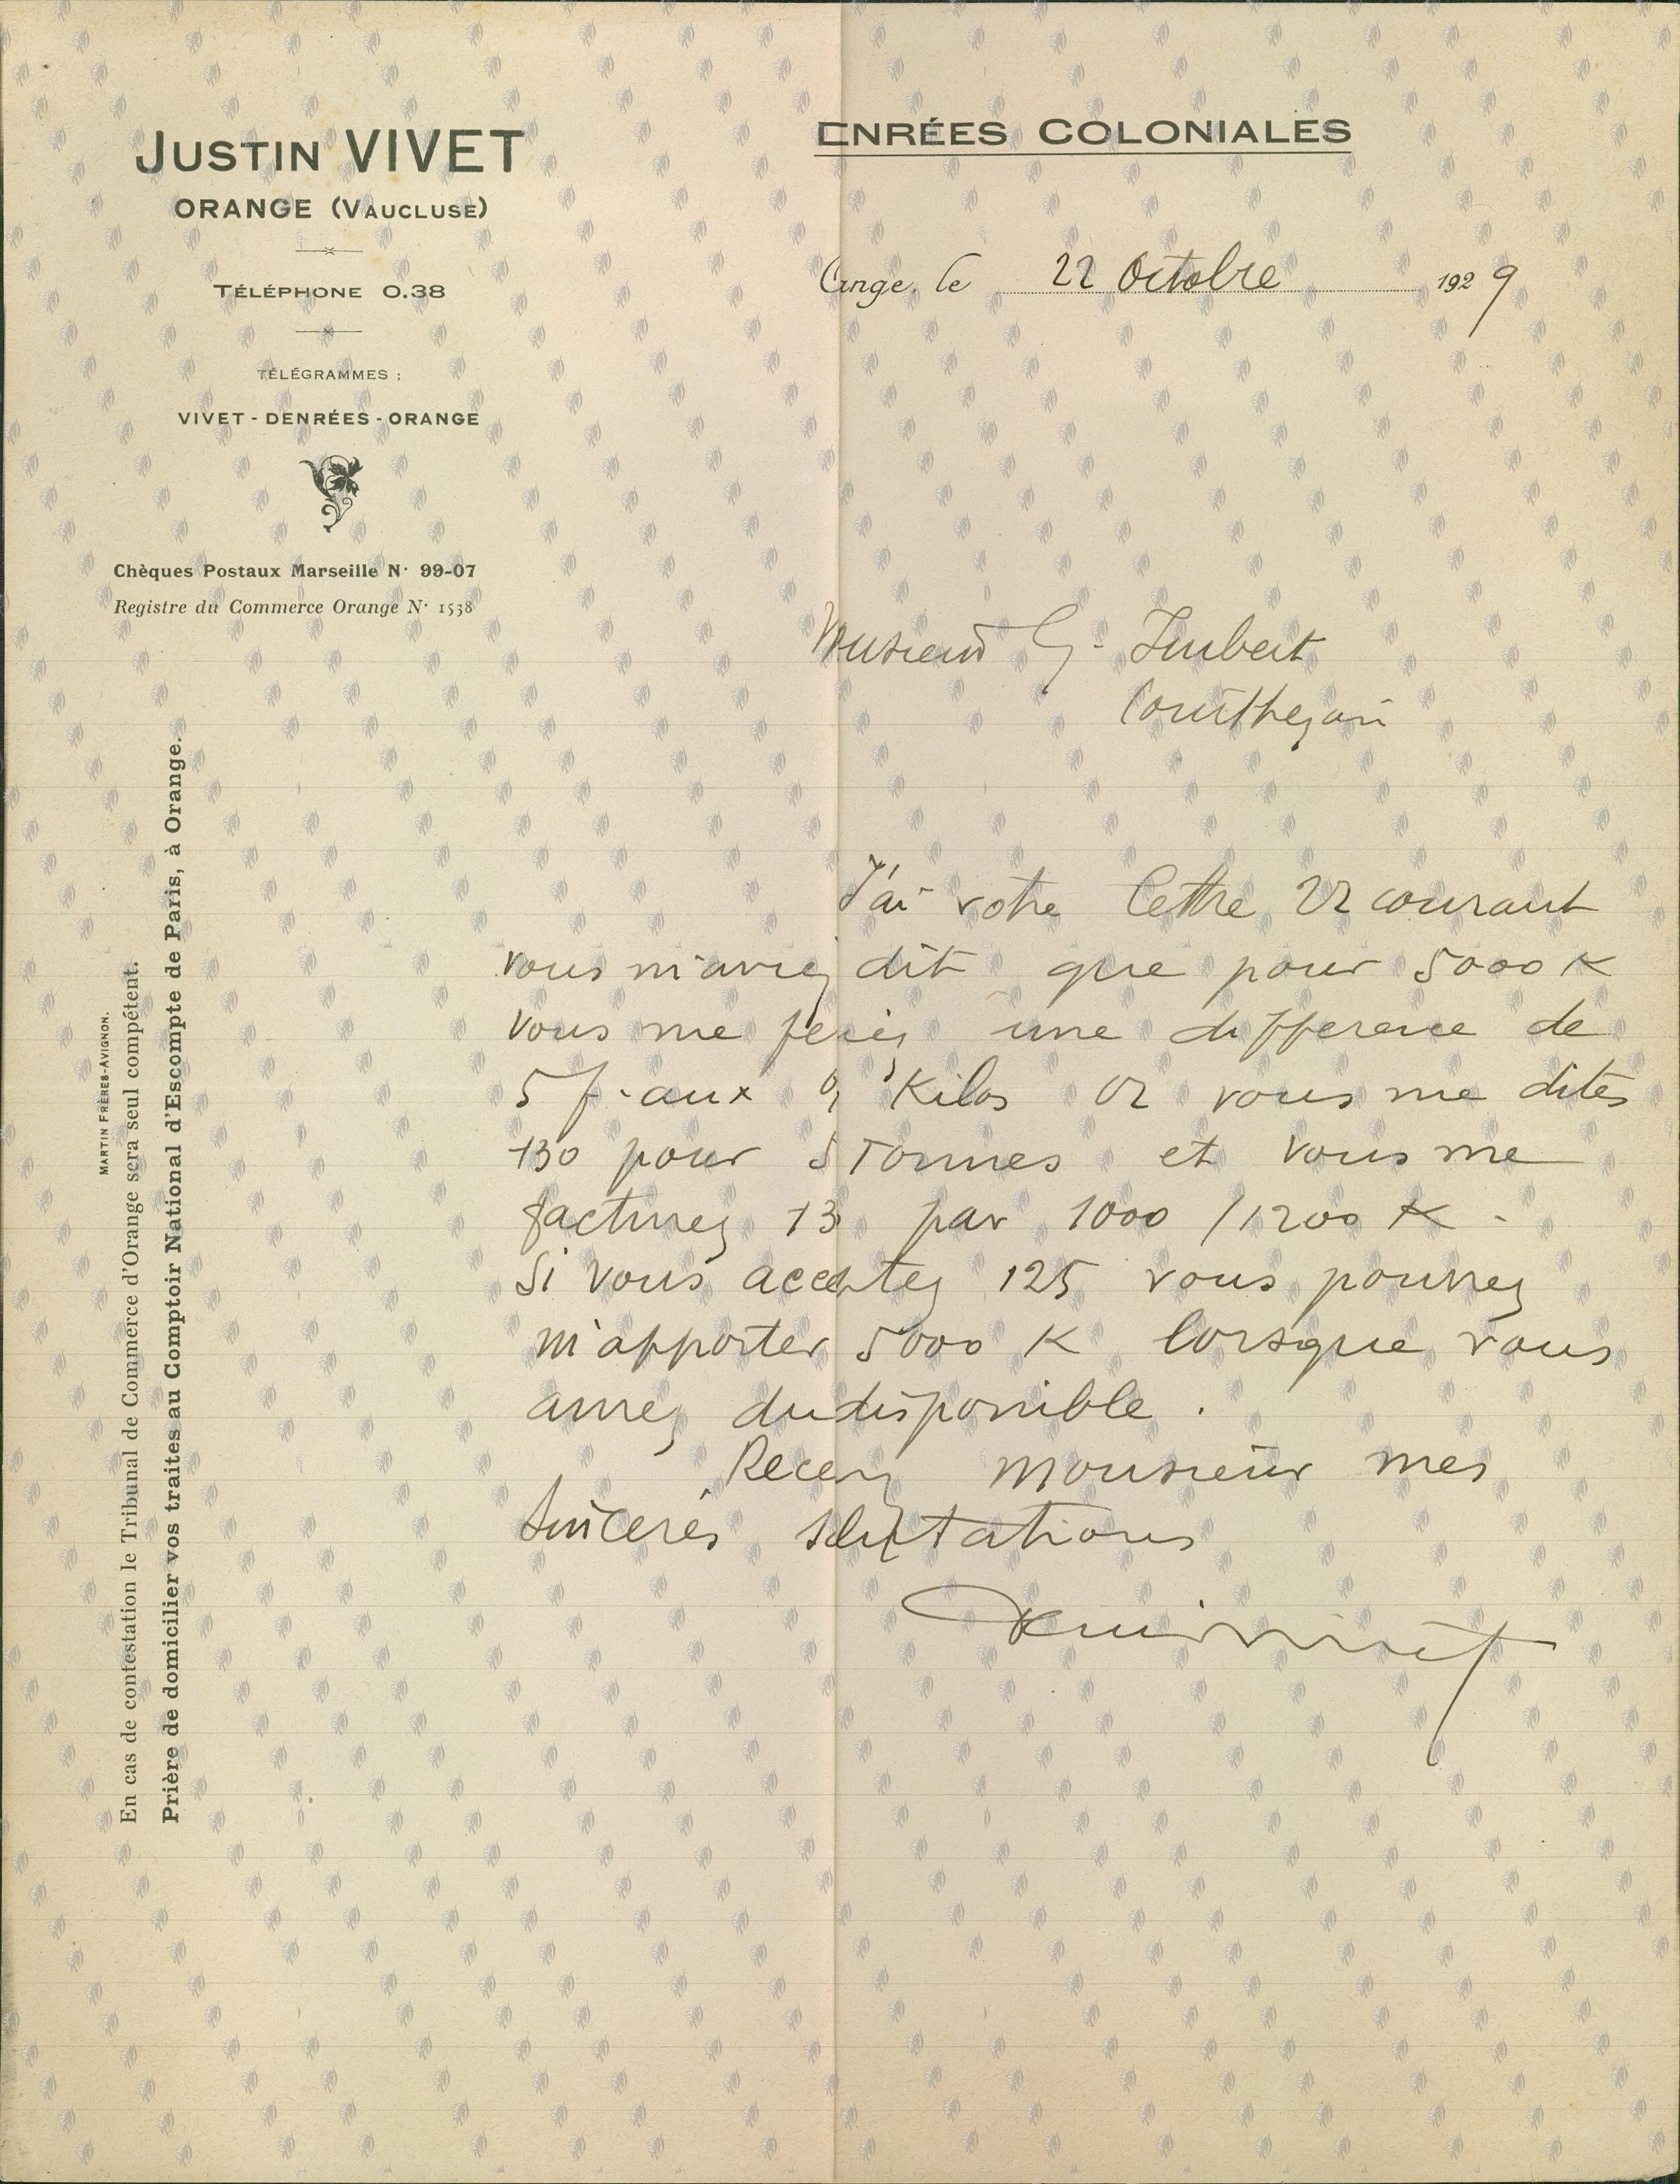 JUSTIN VIVET
ORANGE (VAUCLUSE)
TÉLÉPHONE 0.38
TÉLÉGRAMMES :
VIVET - DENRÉES - ORANGE
Chèques Postaux Marseille N° 99-07
Registre du Commerce Orange N° 1538
ENRÉES COLONIALES
Orange, le 22 Octobre 1929
Monsieur G. Imbert
Courthezon
J'ai votre lettre 22 courant
vous m'aviez dit que pour 5000 K
vous me feriez une difference de
5 f. aux % Kilos or vous me dites
130 pour 5 Tonnes et vous me
facturez 13 par 1000 / 1200 K -
Si vous acceptez 125 vous pourrez
m'apporter 5000 K lorsque vous
aurez du disponible .
Recevez Monsieur mes
sincères salutations
Vivet
MARTIN FRÈRES-AVIGNON.
En cas de contestation le Tribunal de Commerce d'Orange sera seul compétent.
Prière de domicilier vos traites au Comptoir National d'Escompte de Paris, à Orange.